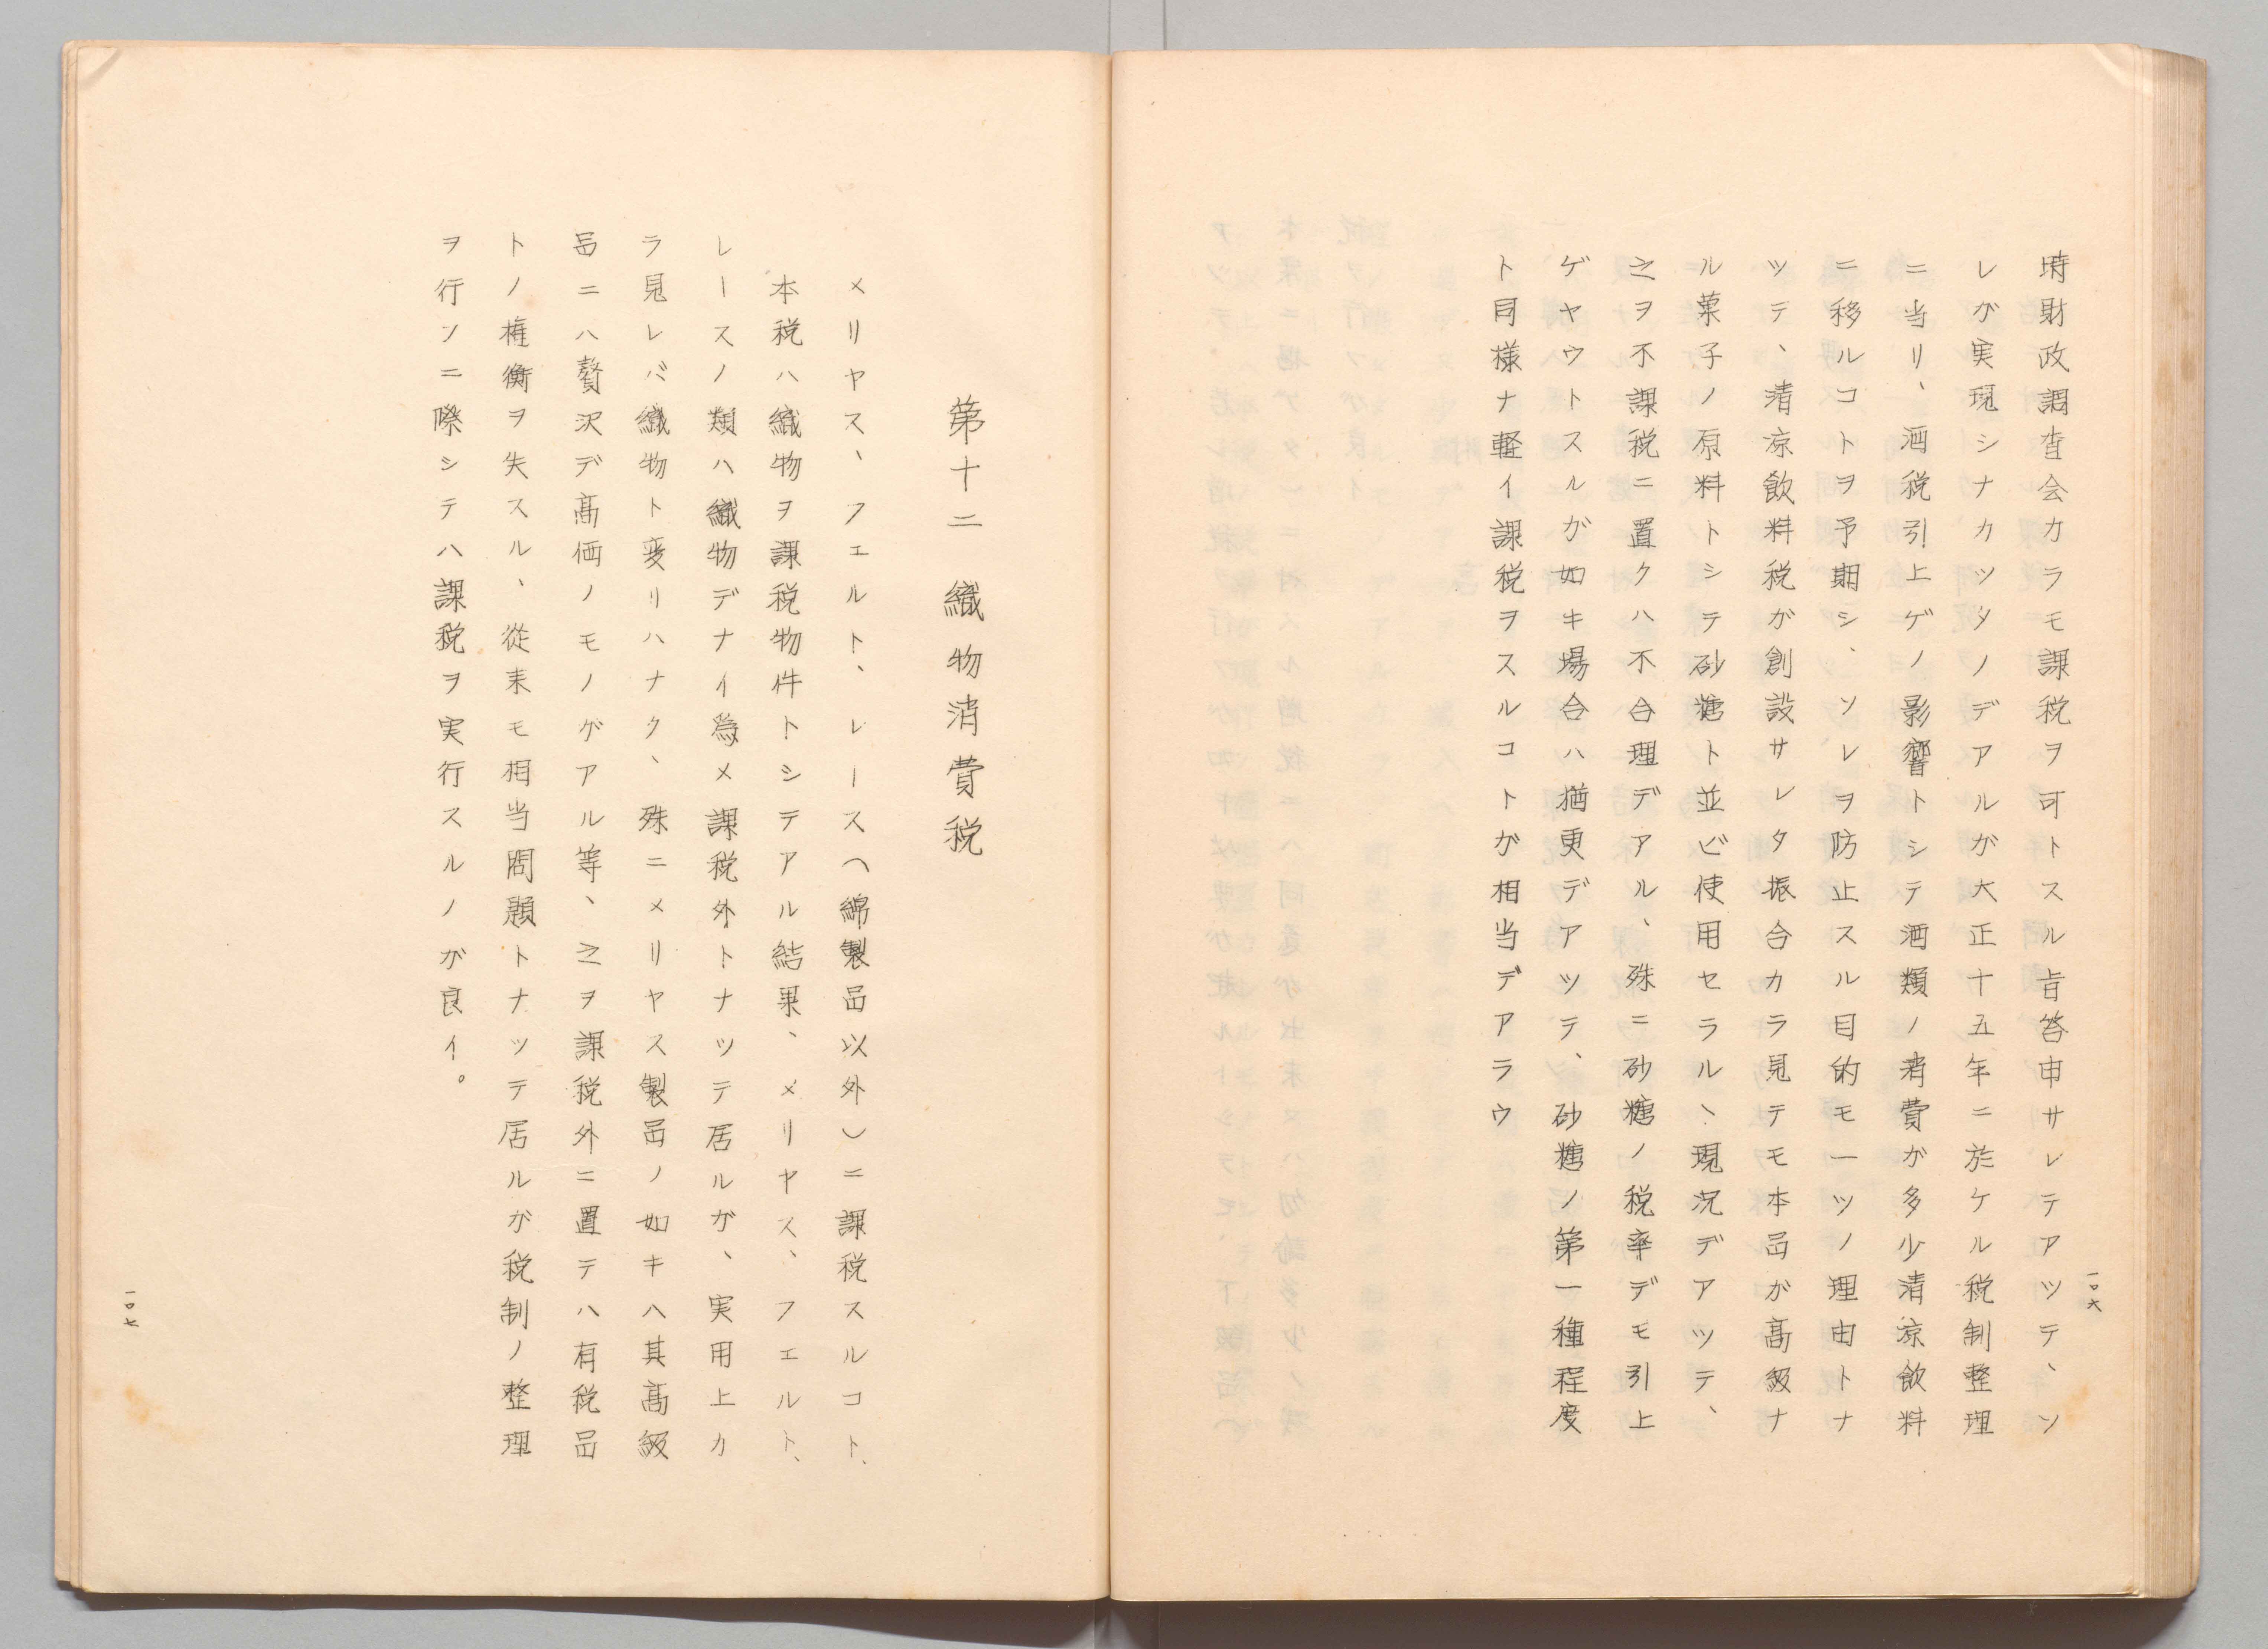 時財政調査会カラモ課税ヲ可トスル旨答申サレテアツテ、ソ
レガ実現シナカツタノデアルガ大正十五年ニ於ケル税制整理
ニ当リ、酒税引上ゲノ影響トシテ酒類ノ消費ガ多少清凉飲料
ニ移ルコトヲ予期シ、ソレヲ防止スル目的モ一ツノ理由トナ
ツテ、清凉飲料税ガ創設サレタ振合カラ見テモ本品ガ高級ナ
ル菓子ノ原料トシテ砂糖ト並ビ使用セラル、現況デアツテ、
之ヲ不課税ニ置クハ不合理デアル、殊ニ砂糖ノ税率デモ引上
ゲヤウトスルガ如キ場合ハ猶更デアツテ、砂糖ノ第一種程度
ト同様ナ軽イ課税ヲスルコトガ相当デアラウ
一〇六
第十二 織物消費税
メリヤス、フエルト、レース（綿製品以外）ニ課税スルコト、
本税ハ織物ヲ課税物件トシテアル結果、メリヤス、フエルト、
レースノ類ハ織物デナイ為メ課税外トナツテ居ルガ、実用上カ
ラ見レバ織物ト変リハナク、殊ニメリヤス製品ノ如キハ其高級
品ニハ贅沢デ高価ノモノガアル等、之ヲ課税外ニ置テハ有税品
トノ権衡ヲ失スル、従来モ相当問題トナツテ居ルガ税制ノ整理
ヲ行ソニ際シテハ課税ヲ実行スルノガ良イ。
一〇七